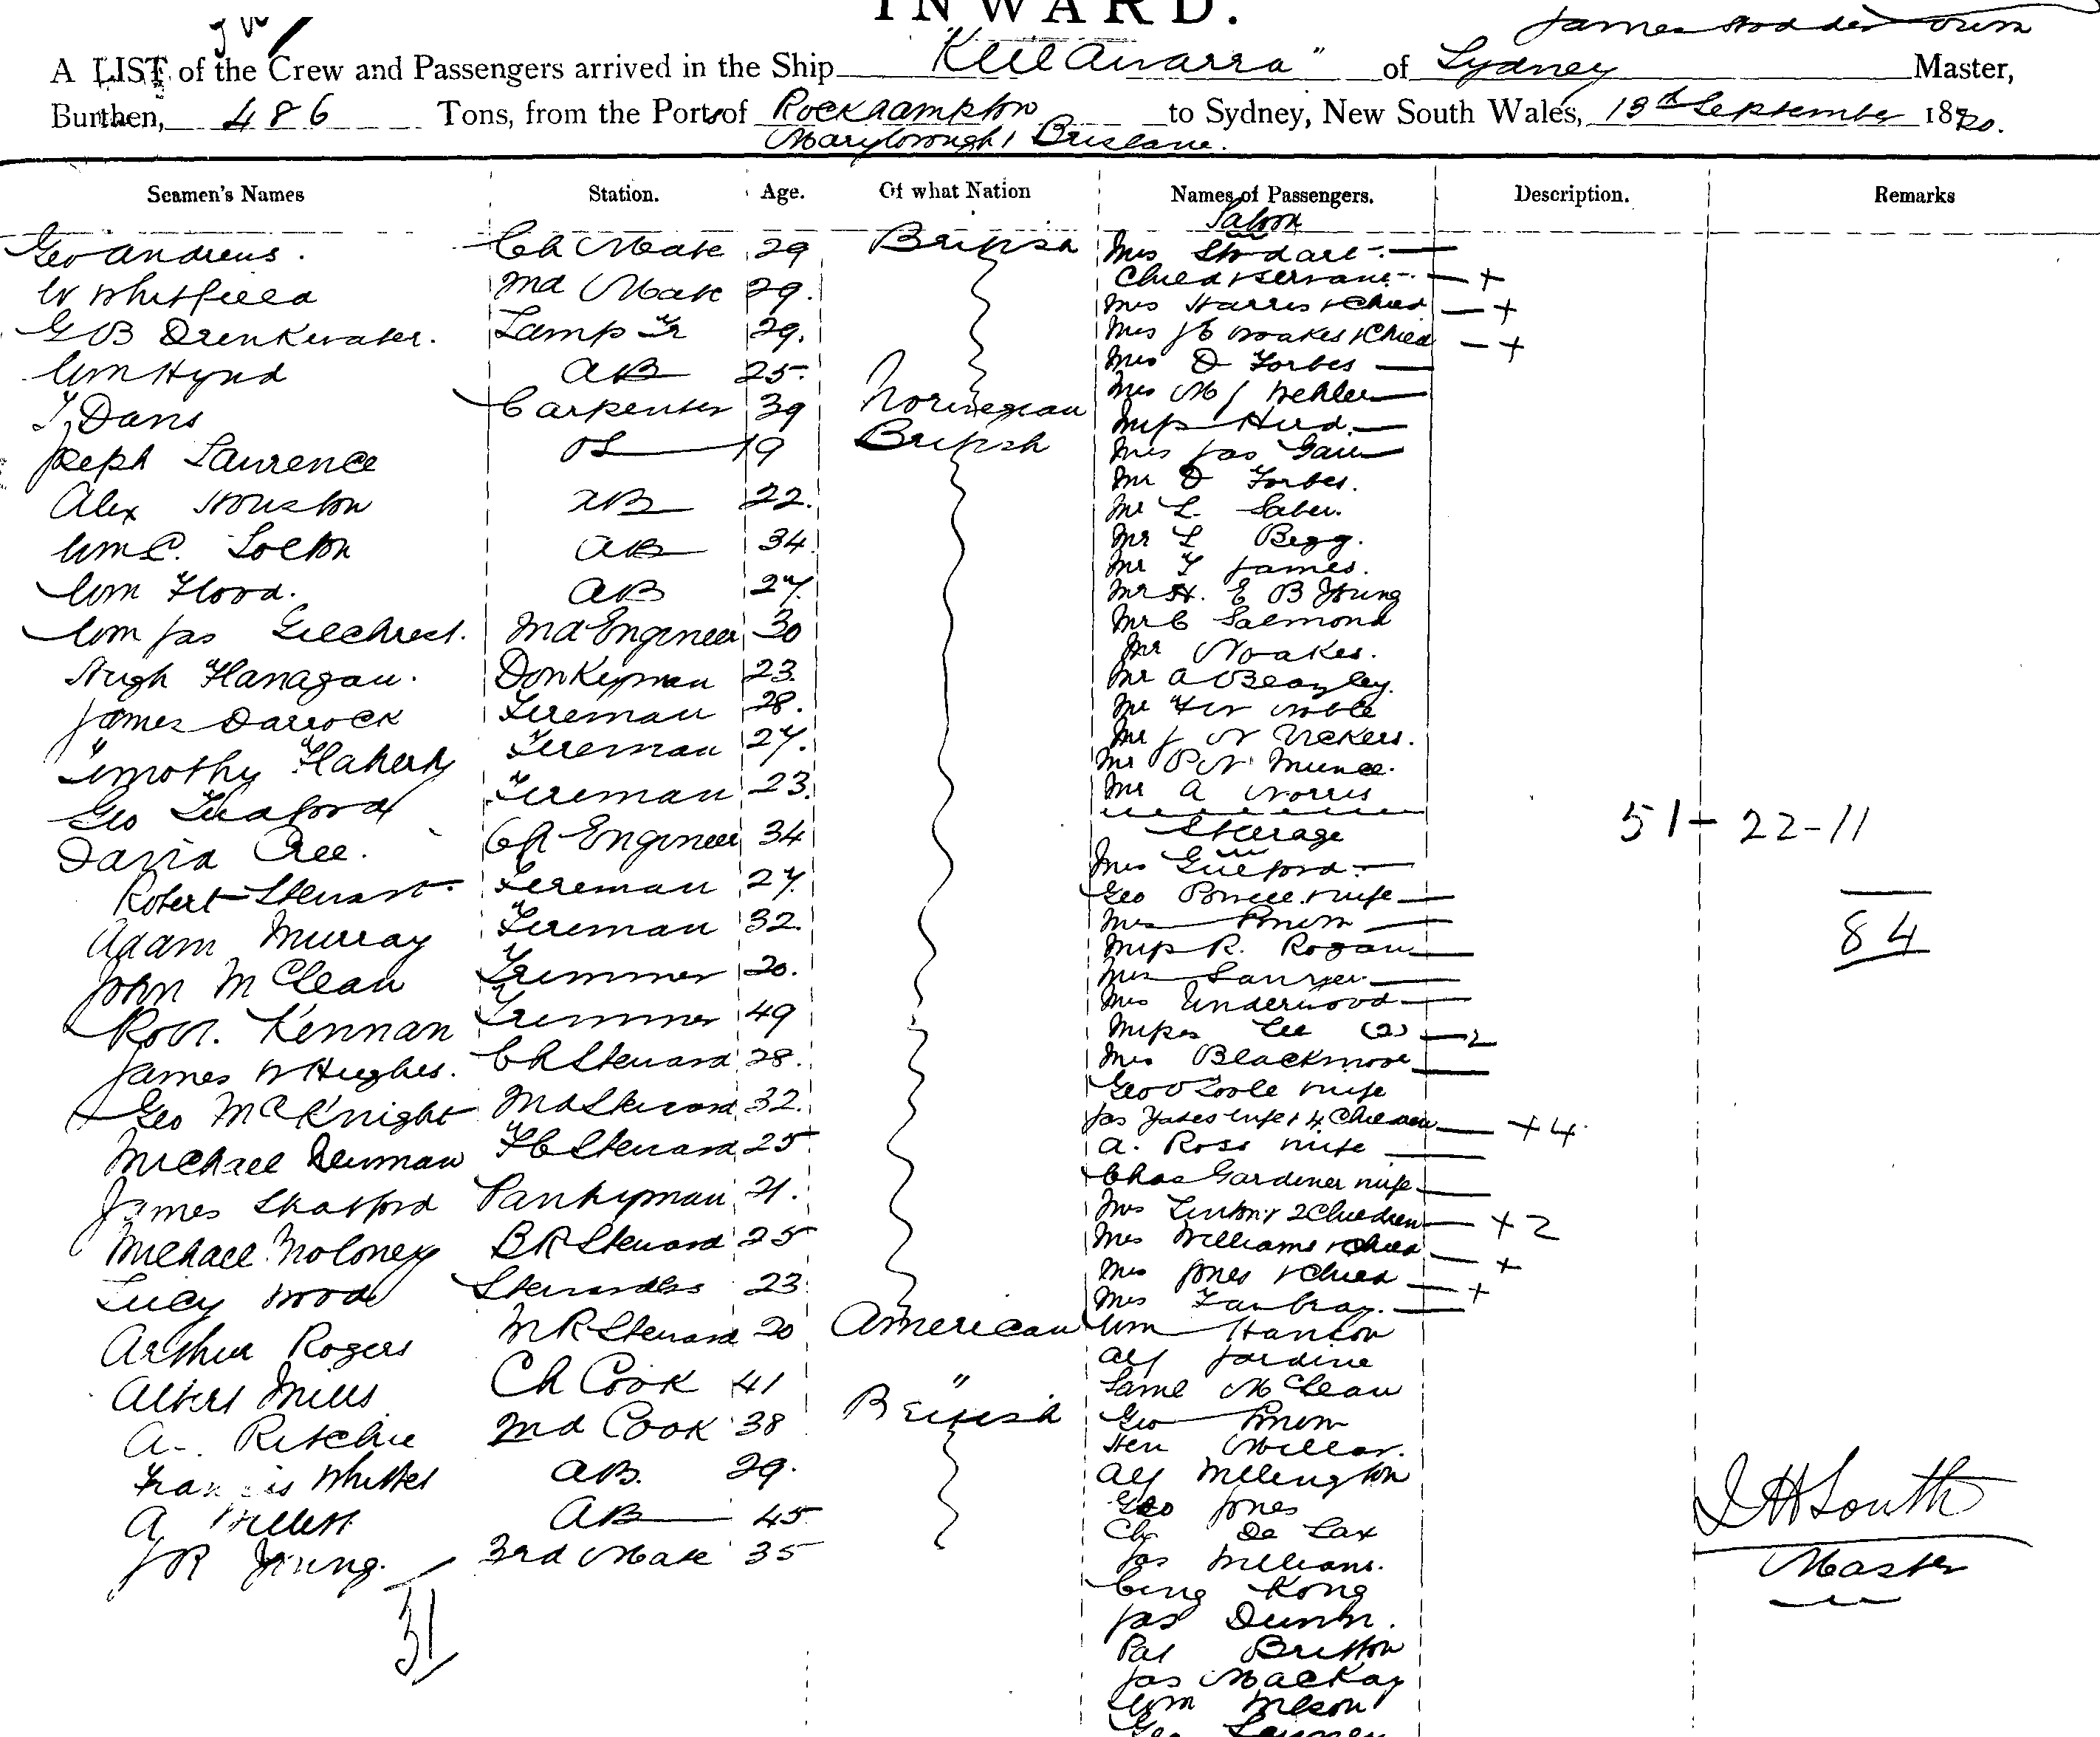 INWARD.
James Hodder
A LIST of the Crew and Passengers arrived in the Ship "Keilawarra" of Sydney Master,
Burthen, 486 Tons, from the Ports of Rockhampton to Sydney, New South Wales, 13th September 18
Maryborough & Brisbane.
Seamen's Names Station. Age. Of what Nation Names of Passengers. Description. Remarks
Geo Andrews. Ch Mate 29 British
W Whitfield 2nd Mate 29.
G B Drinkwater. Lamp Tr 29.
Wm Hynd AB 25.
J. Davis Carpenter 39 Norwegian
Joseph Laurence OS 19 British
Alex Houston AB 22.
Wm C. AB 34
Wm Flood. AB 27.
Wm Jas Gilchrist. 2nd Engineer 30
Hugh Flanagan. Donkeyman 23.
James Darrock Fireman 28.
Timothy Flaherty Fireman 27.
Geo Fireman 23.
David Cree. Ch Engineer 34
Robert Stewart Fireman 27.
Adam Murray Fireman 32.
John McClean Trimmer 20.
Robt. Kennan Trimmer 49
James W Hughes. Ch Steward 28.
Geo McKnight 2nd Steward 32.
Michael Newman FC Steward 25
James Stratford Pantryman 21.
Michael Moloney BR Steward 25
Lucy Wood Stewardess 23
Arthur Rogers MR Steward 20 American
Albert Mills Ch Cook 41 "
A. Ritchie 2nd Cook 38 British
Francis Whittel AB. 29.
A AB 45
J R Young. 3rd Mate 35
31
Saloon
Mrs Stodart —
Child & servant — +
Mrs Harris & Child — +
Mrs J E Noakes & Child — +
Mrs D Forbes —
Mrs M J —
Miss Hird —
Mrs Jas —
Mr D Forbes.
Mr L
Mr L Begg.
Mr F James.
Mr H. E B Young
Mr C Salmond
Mr Noakes.
Mr A Beazley.
Mr F W Noble
Mr J N Vickers.
Mr P N Munce.
Mr A Norris
Steerage
Mrs Guilford. —
Geo Powell & wife —
Mrs Brown —
Miss R. Rogan —
Mrs Sawyer —
Mrs Underwood —
Misses Lee (2) — 2
Mrs Blackmore —
Geo O'Toole & wife
Jas Yates wife & 4 Children — +4
A. Ross & wife —
Chas Gardener & wife —
Mrs Linton & 2 Children — +2
Mrs Williams & Child — +
Mrs Jones & Child — +
Mrs —
Wm Hanlon
Alf Jardine
Saml McClean
Geo Brown
Hen Millar.
Alf Millington
Geo Jones
Ch De Lax
Jas Williams.
Cing Kong
Jas Dunn.
Pat Britton
Jas Mackay
Wm Wilson
Geo
51 - 22 - 11
84
J H South
Master